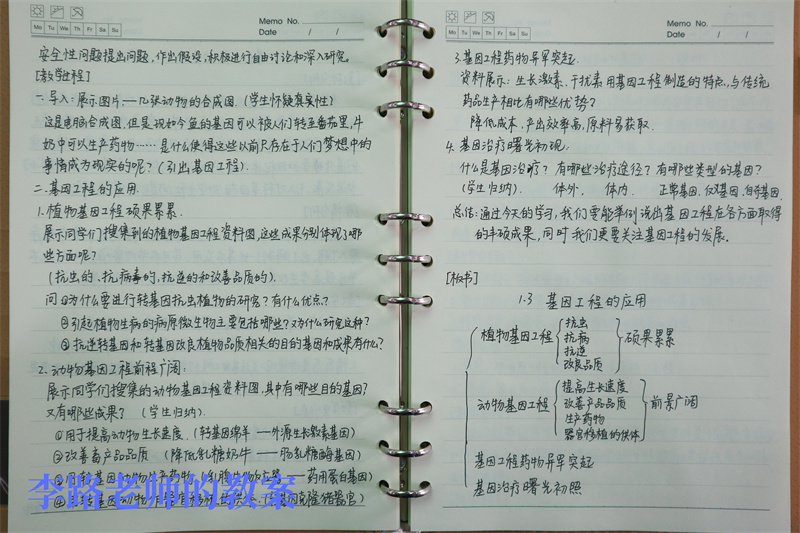 Memo No.
Mo Tu We Th Fr Sa Su
Date / /
安全性问题提出问题，作出假设，积极进行自由讨论和深入研究。
[教学过程]
一.导入：展示图片——几张动物的合成图.（学生怀疑真实性）
这是电脑合成图，但是现如今鱼的基因可以被人们转至番茄里，牛
奶中可以生产药物……是什么使得这些以前只存在于人们梦想中的
事情成为现实的呢？（引出基因工程）.
二.基因工程的应用.
1.植物基因工程硕果累累.
展示同学们搜集到的植物基因工程资料图，这些成果分别体现了哪
些方面呢？
（抗虫的、抗病毒的，抗逆的和改善品质的）.
问①为什么要进行转基因抗虫植物的研究？有什么优点？
②引起植物生病的病原微生物主要包括哪些？又为什么研究这种？
③抗逆转基因和转基因改良植物品质相关的目的基因和成果有什么？
2.动物基因工程前程广阔：
展示同学们搜集的动物基因工程资料图，其中有哪些目的基因？
又有哪些成果？（学生归纳）
①用于提高动物生长速度.（转基因绵羊——外源生长激素基因）
②改善畜产品品质（降低乳糖奶牛——肠乳糖酶基因）
药用蛋白基因）
李路老师的教案
Memo No.
Mo Tu We Th Fr Sa Su
Date / /
3.基因工程药物异军突起.
资料展示：生长激素、干扰素用基因工程制造的特点，与传统
药品生产相比有哪些优势？
降低成本，产出效率高，原料易获取.
4.基因治疗曙光初现：
什么是基因治疗？有哪些治疗途径？有哪些类型的基因？
（学生归纳）. 体外， 体内. 正常基因，反义基因，自杀基因.
总结：通过今天的学习，我们要能举例说出基因工程在各方面取得
的丰硕成果，同时我们更要关注基因工程的发展。
[板书]
1.3 基因工程的应用
植物基因工程 硕果累累
抗虫
抗病
抗逆
改良品质
动物基因工程 前景广阔
提高生长速度
改善产品品质
生产药物
器官移植的供体
基因工程药物异军突起
基因治疗曙光初照